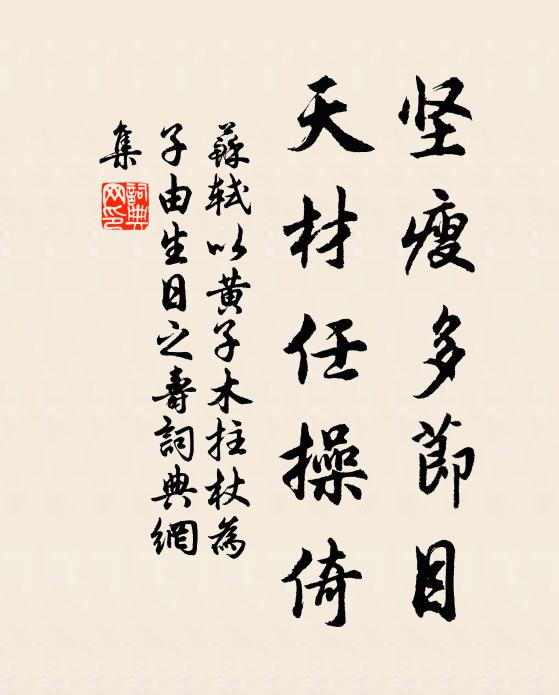 坚瘦多節目
天材任操倚
蘇軾以黄子木拄杖為
子由生日之壽詞典網
集
詞典网印